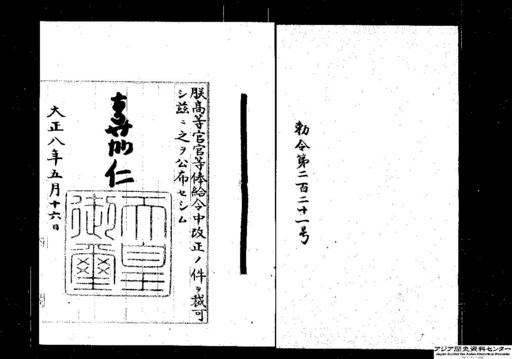 勅令第二百二十一号
朕高等官官等俸給令中改正ノ件ヲ裁可
シ茲ニ之ヲ公布セシム
嘉仁
天皇御璽
大正八年五月十六日
アジア歴史資料センター
Japan Center for Asian Historical Records